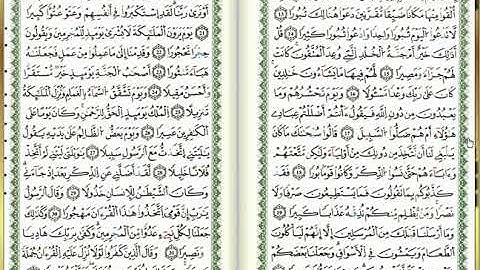 أُلْقُوا مِنْهَا مَكَانًا ضَيِّقًا مُّقَرَّنِينَ دَعَوْا هُنَالِكَ ثُبُورًا
١٣ لَّا تَدْعُوا الْيَوْمَ ثُبُورًا وَاحِدًا وَادْعُوا ثُبُورًا كَثِيرًا ١٤ قُلْ
أَذَٰلِكَ خَيْرٌ أَمْ جَنَّةُ الْخُلْدِ الَّتِي وُعِدَ الْمُتَّقُونَ كَانَتْ
لَهُمْ جَزَاءً وَمَصِيرًا ١٥ لَّهُمْ فِيهَا مَا يَشَاءُونَ خَالِدِينَ
كَانَ عَلَىٰ رَبِّكَ وَعْدًا مَّسْئُولًا ١٦ وَيَوْمَ يَحْشُرُهُمْ وَمَا
يَعْبُدُونَ مِن دُونِ اللَّهِ فَيَقُولُ ءَأَنتُمْ أَضْلَلْتُمْ عِبَادِي
هَٰؤُلَاءِ أَمْ هُمْ ضَلُّوا السَّبِيلَ ١٧ قَالُوا سُبْحَانَكَ مَا كَانَ
يَنبَغِي لَنَا أَن نَّتَّخِذَ مِن دُونِكَ مِنْ أَوْلِيَاءَ وَلَٰكِن مَّتَّعْتَهُمْ
وَءَابَاءَهُمْ حَتَّىٰ نَسُوا الذِّكْرَ وَكَانُوا قَوْمًا بُورًا ١٨ فَقَدْ
كَذَّبُوكُم بِمَا تَقُولُونَ فَمَا تَسْتَطِيعُونَ صَرْفًا وَلَا
نَصْرًا وَمَن يَظْلِم مِّنكُمْ نُذِقْهُ عَذَابًا كَبِيرًا ١٩
وَمَا أَرْسَلْنَا قَبْلَكَ مِنَ الْمُرْسَلِينَ إِلَّا إِنَّهُمْ لَيَأْكُلُونَ
الطَّعَامَ وَيَمْشُونَ فِي الْأَسْوَاقِ وَجَعَلْنَا بَعْضَكُمْ
أَوْ نَرَىٰ رَبَّنَا لَقَدِ اسْتَكْبَرُوا فِي أَنفُسِهِمْ وَعَتَوْ عُتُوًّا كَبِيرًا
٢١ يَوْمَ يَرَوْنَ الْمَلَائِكَةَ لَا بُشْرَىٰ يَوْمَئِذٍ لِّلْمُجْرِمِينَ وَيَقُولُونَ
حِجْرًا مَّحْجُورًا ٢٢ وَقَدِمْنَا إِلَىٰ مَا عَمِلُوا مِنْ عَمَلٍ فَجَعَلْنَاهُ
هَبَاءً مَّنثُورًا ٢٣ أَصْحَابُ الْجَنَّةِ يَوْمَئِذٍ خَيْرٌ مُّسْتَقَرًّا
وَأَحْسَنُ مَقِيلًا ٢٤ وَيَوْمَ تَشَقَّقُ السَّمَاءُ بِالْغَمَامِ وَنُزِّلَ الْمَلَائِكَةُ
تَنزِيلًا ٢٥ الْمُلْكُ يَوْمَئِذٍ الْحَقُّ لِلرَّحْمَٰنِ وَكَانَ يَوْمًا عَلَى
الْكَافِرِينَ عَسِيرًا ٢٦ وَيَوْمَ يَعَضُّ الظَّالِمُ عَلَىٰ يَدَيْهِ يَقُولُ
يَا لَيْتَنِي اتَّخَذْتُ مَعَ الرَّسُولِ سَبِيلًا ٢٧ يَا وَيْلَتَىٰ لَيْتَنِي لَمْ أَتَّخِذْ
فُلَانًا خَلِيلًا ٢٨ لَّقَدْ أَضَلَّنِي عَنِ الذِّكْرِ بَعْدَ إِذْ جَاءَنِي
وَكَانَ الشَّيْطَانُ لِلْإِنسَانِ خَذُولًا ٢٩ وَقَالَ الرَّسُولُ
يَا رَبِّ إِنَّ قَوْمِي اتَّخَذُوا هَٰذَا الْقُرْءَانَ مَهْجُورًا ٣٠ وَكَذَٰلِكَ
جَعَلْنَا لِكُلِّ نَبِيٍّ عَدُوًّا مِّنَ الْمُجْرِمِينَ وَكَفَىٰ بِرَبِّكَ هَادِيًا
وَنَصِيرًا ٣١ وَقَالَ الَّذِينَ كَفَرُوا لَوْلَا نُزِّلَ عَلَيْهِ الْقُرْءَانُ جُمْلَةً